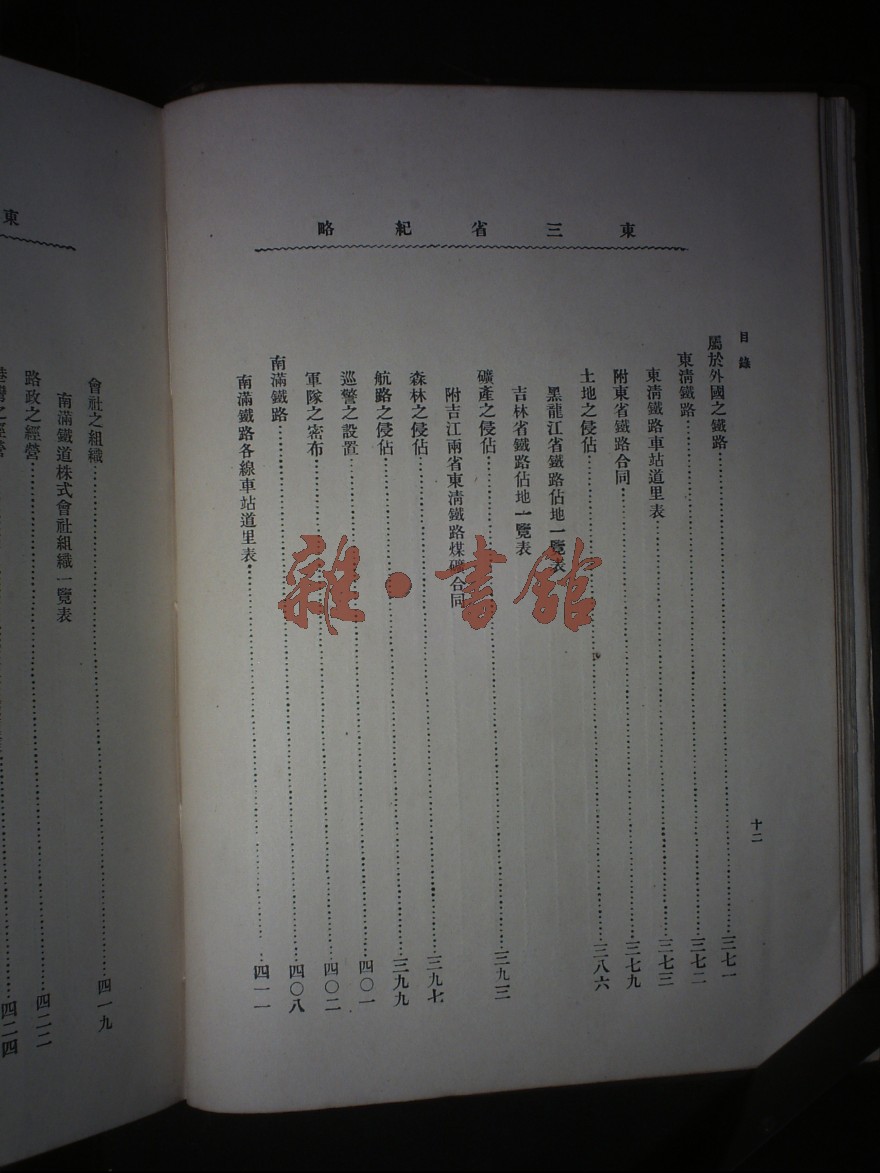 東三省紀略
目錄
十二
屬於外國之鐵路……三七一
東淸鐵路……三七二
東淸鐵路車站道里表……三七三
附東省鐵路合同……三七九
土地之侵佔……三八六
黑龍江省鐵路佔地一覽表
吉林省鐵路佔地一覽表
礦產之侵佔……三九三
附吉江兩省東淸鐵路煤礦合同
森林之侵佔……三九七
航路之侵佔……三九九
巡警之設置……四〇一
軍隊之密布……四〇二
南滿鐵路……四〇八
南滿鐵路各線車站道里表……四一一
東
會社之組織……四一九
南滿鐵道株式會社組織一覽表
路政之經營……四二二
港灣之經營……四二四
雜·書館